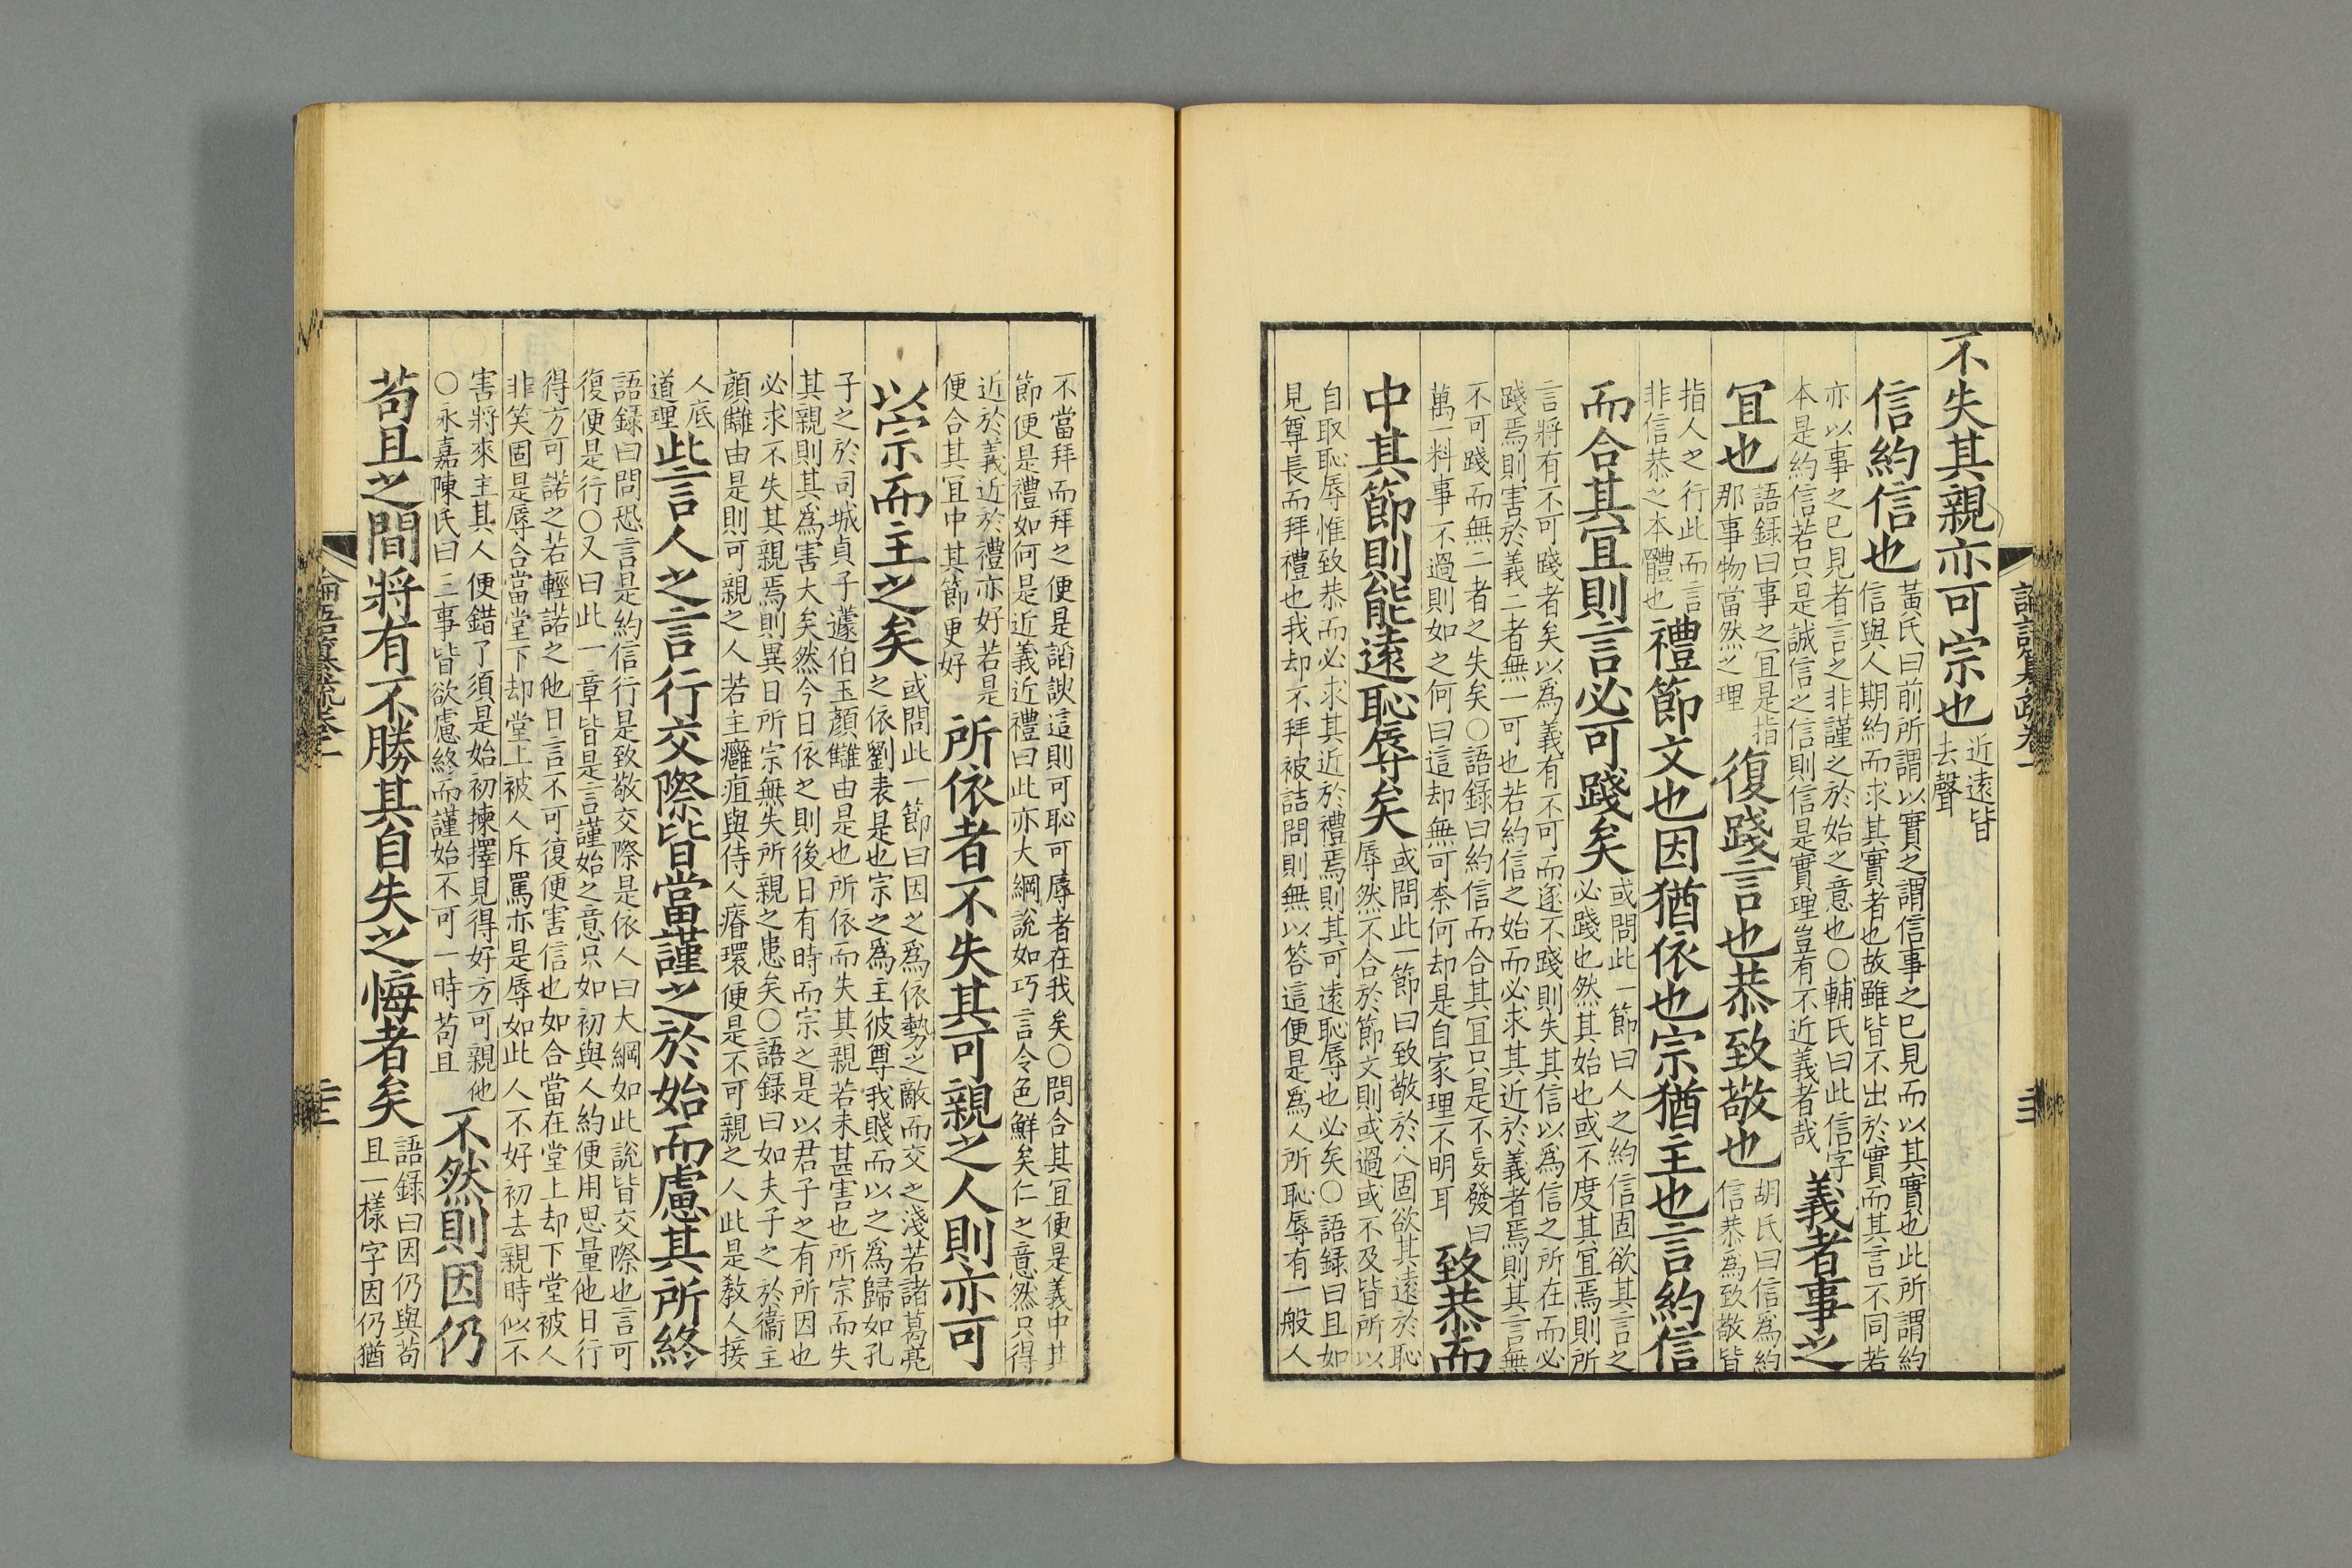 不失其親亦可宗也
近遠皆
去聲
信約信也
黃氏曰前所謂以實之謂信事之已見而以其實也此所謂約
信與人期約而求其實者也故雖皆不出於實而其言不同若
亦以事之已見者言之非謹之於始之意也○輔氏曰此信字
本是約信若只是誠信之信則信是實理豈有不近義者哉
義者事之
宜也
語録曰事之宜是指
那事物當然之理
復踐言也恭致敬也
胡氏曰信爲約
信恭爲致敬皆
指人之行此而言
非信恭之本體也
禮節文也因猶依也宗猶主也言約信
而合其宜則言必可踐矣
或問此一節曰人之約信固欲其言之
必踐也然其始也或不度其宜焉則所
言將有不可踐者矣以爲義有不可而遂不踐則失其信以爲信之所在而必
踐焉則害於義二者無一可也若約信之始而必求其近於義者焉則其言無
不可踐而無二者之失矣○語録曰約信而合其宜只是不妄發曰
萬一料事不過則如之何曰這却無可柰何却是自家理不明耳
致恭而
中其節則能遠恥辱矣
或問此一節曰致敬於人固欲其遠於恥
辱然不合於節文則或過或不及皆所以
自取恥辱惟致恭而必求其近於禮焉則其可遠恥辱也必矣○語録曰且如
見尊長而拜禮也我却不拜被詰問則無以答這便是爲人所恥辱有一般人
不當拜而拜之便是謟諛這則可恥可辱者在我矣○問合其宜便是義中其
節便是禮如何是近義近禮曰此亦大綱說如巧言令色鮮矣仁之意然只得
近於義近於禮亦好若是
便合其宜中其節更好
所依者不失其可親之人則亦可
以宗而主之矣
或問此一節曰因之爲依勢之敵而交之淺若諸葛亮
之依劉表是也宗之爲主彼尊我賤而以之爲歸如孔
子之於司城貞子蘧伯玉顏讎由是也所依而失其親若未甚害也所宗而失
其親則其爲害大矣然今日依之則後日有時而宗之是以君子之有所因也
必求不失其親焉則異日所宗無失所親之患矣○語録曰如夫子之於衞主
顏讎由是則可親之人若主癰疽與侍人瘠環便是不可親之人此是敎人接
人底
道理
此言人之言行交際皆當謹之於始而慮其所終
語録曰問恐言是約信行是致敬交際是依人曰大綱如此說皆交際也言可
復便是行○又曰此一章皆是言謹始之意只如初與人約便用思量他日行
得方可諾之若輕諾之他日言不可復便害信也如合當在堂上却下堂被人
非笑固是辱合當堂下却堂上被人斥罵亦是辱如此人不好初去親時似不
害將來主其人便錯了須是始初揀擇見得好方可親他
○永嘉陳氏曰三事皆欲慮終而謹始不可一時苟且
不然則因仍
苟且之間將有不勝其自失之悔者矣
語録曰因仍與苟
且一樣字因仍猶